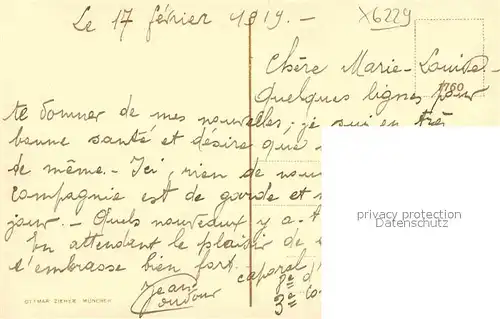 Le 17 février 1919. -
X6229
Chère Marie-Louise. -
1760
Quelques lignes pour
te donner de mes nouvelles; je suis en très
bonne santé et désire que
de même. - Ici, rien de nouv
compagnie est de garde et
jour. - Quels nouveaux y a-t
En attendant le plaisir de
t'embrasse bien fort.
caporal
Jean
2e d
3e Co
privacy protection
Datenschutz
OTTMAR ZIEHER, MÜNCHEN